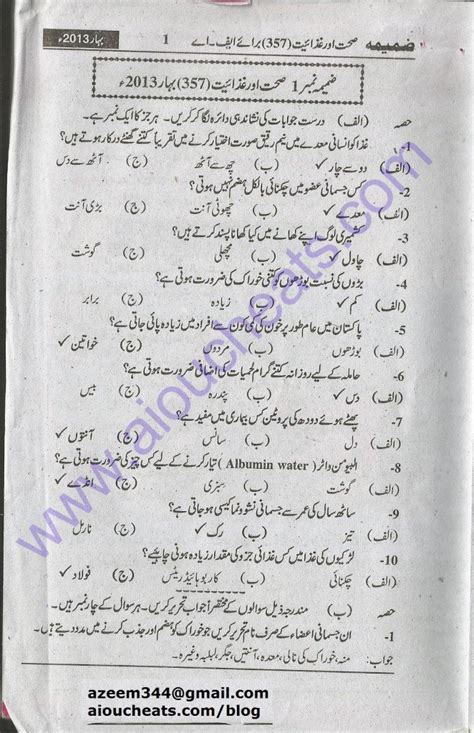 ضمیمہ صحت اور غذائیت (357) برائے ایف۔اے 1 بہار 2013ء
ضمیمہ نمبر 1 صحت اور غذائیت (357) بہار 2013ء
حصہ (الف) درست جوابات کی نشاندہی دائرہ لگا کر کریں۔ ہر جز کا ایک نمبر ہے۔
1- غذا کو انسانی معدے میں نیم رقیق صورت اختیار کرنے میں تقریباً کتنے گھنٹے درکار ہوتے ہیں؟
(الف) دو سے چار ✓ (ب) چھ سے آٹھ (ج) آٹھ سے دس
2- کس جسمانی عضو میں چکنائی بالکل ہضم نہیں ہوتی؟
(الف) معدے ✓ (ب) چھوٹی آنت (ج) بڑی آنت
3- کشمیری لوگ اپنے کھانے میں کیا کھانا پسند کرتے ہیں؟
(الف) چاول ✓ (ب) مچھلی (ج) گوشت
4- بڑوں کی نسبت بوڑھوں کو کتنی خوراک کی ضرورت ہوتی ہے؟
(الف) کم ✓ (ب) زیادہ (ج) برابر
5- پاکستان میں عام طور پر خون کی کمی کون سے افراد میں زیادہ پائی جاتی ہے؟
(الف) بوڑھوں (ب) مردوں (ج) خواتین ✓
6- حاملہ کے لیے روزانہ کتنے گرام لحمیات کی اضافی ضرورت ہوتی ہے؟
(الف) دس ✓ (ب) پندرہ (ج) بیس
7- پھٹے ہوئے دودھ کی پروٹین کس بیماری میں مفید ہے؟
(الف) دل (ب) سانس (ج) آنتوں ✓
8- البیومن واٹر (Albumin water) تیار کرنے کے لیے کس چیز کی ضرورت ہوتی ہے؟
(الف) گوشت (ب) سبزی (ج) انڈے ✓
9- ساٹھ سال کی عمر سے جسمانی نشوونما کیسی ہو جاتی ہے؟
(الف) تیز (ب) رک ✓ (ج) نارمل
10- لڑکیوں کی غذا میں کس غذائی جز کی مقدار زیادہ ہونی چاہیے؟
(الف) چکنائی (ب) کاربوہائیڈریٹس (ج) فولاد ✓
حصہ (ب) مندرجہ ذیل سوالوں کے مختصر جواب تحریر کریں۔ ہر سوال کے چار نمبر ہیں۔
1- ان جسمانی اعضاء کے صرف نام تحریر کریں جو خوراک کو ہضم اور جذب کرنے میں مدد دیتے ہیں۔
جواب: منہ، خوراک کی نالی، معدہ، آنتیں، جگر، لبلبہ وغیرہ۔
www.aioucheats.com
azeem344@gmail.com
aioucheats.com/blog